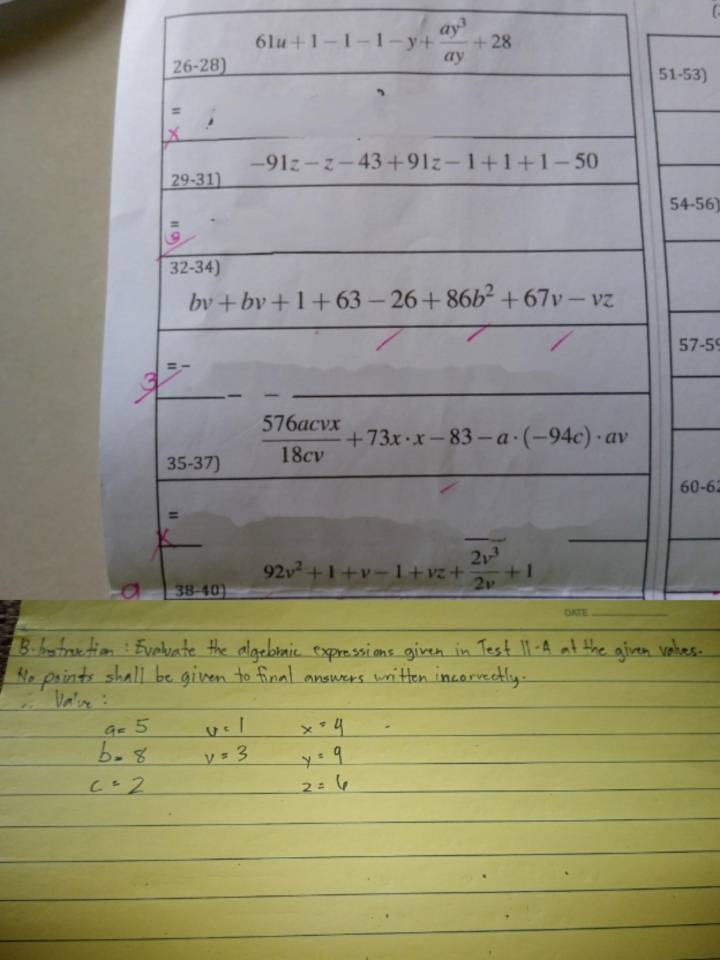 61u + 1 − 1 − 1 − y + ay³/ay + 28
26-28)
=
x
−91z − z − 43 + 91z − 1 + 1 + 1 − 50
29-31)
=
32-34)
bv + bv + 1 + 63 − 26 + 86b² + 67v − vz
= -
3
576acvx/18cv + 73x · x − 83 − a · (−94c) · av
35-37)
=
x
92v² + 1 + v − 1 + vz + 2v³/2v + 1
38-40)
51-53)
54-56)
57-59
60-62
DATE
B. Instruction : Evaluate the algebraic expressions given in Test II-A at the given values.
No points shall be given to final answers written incorrectly.
∴ Value :
a= 5 u= 1 x = 4
b= 8 v = 3 y = 9
c = 2 z = 6